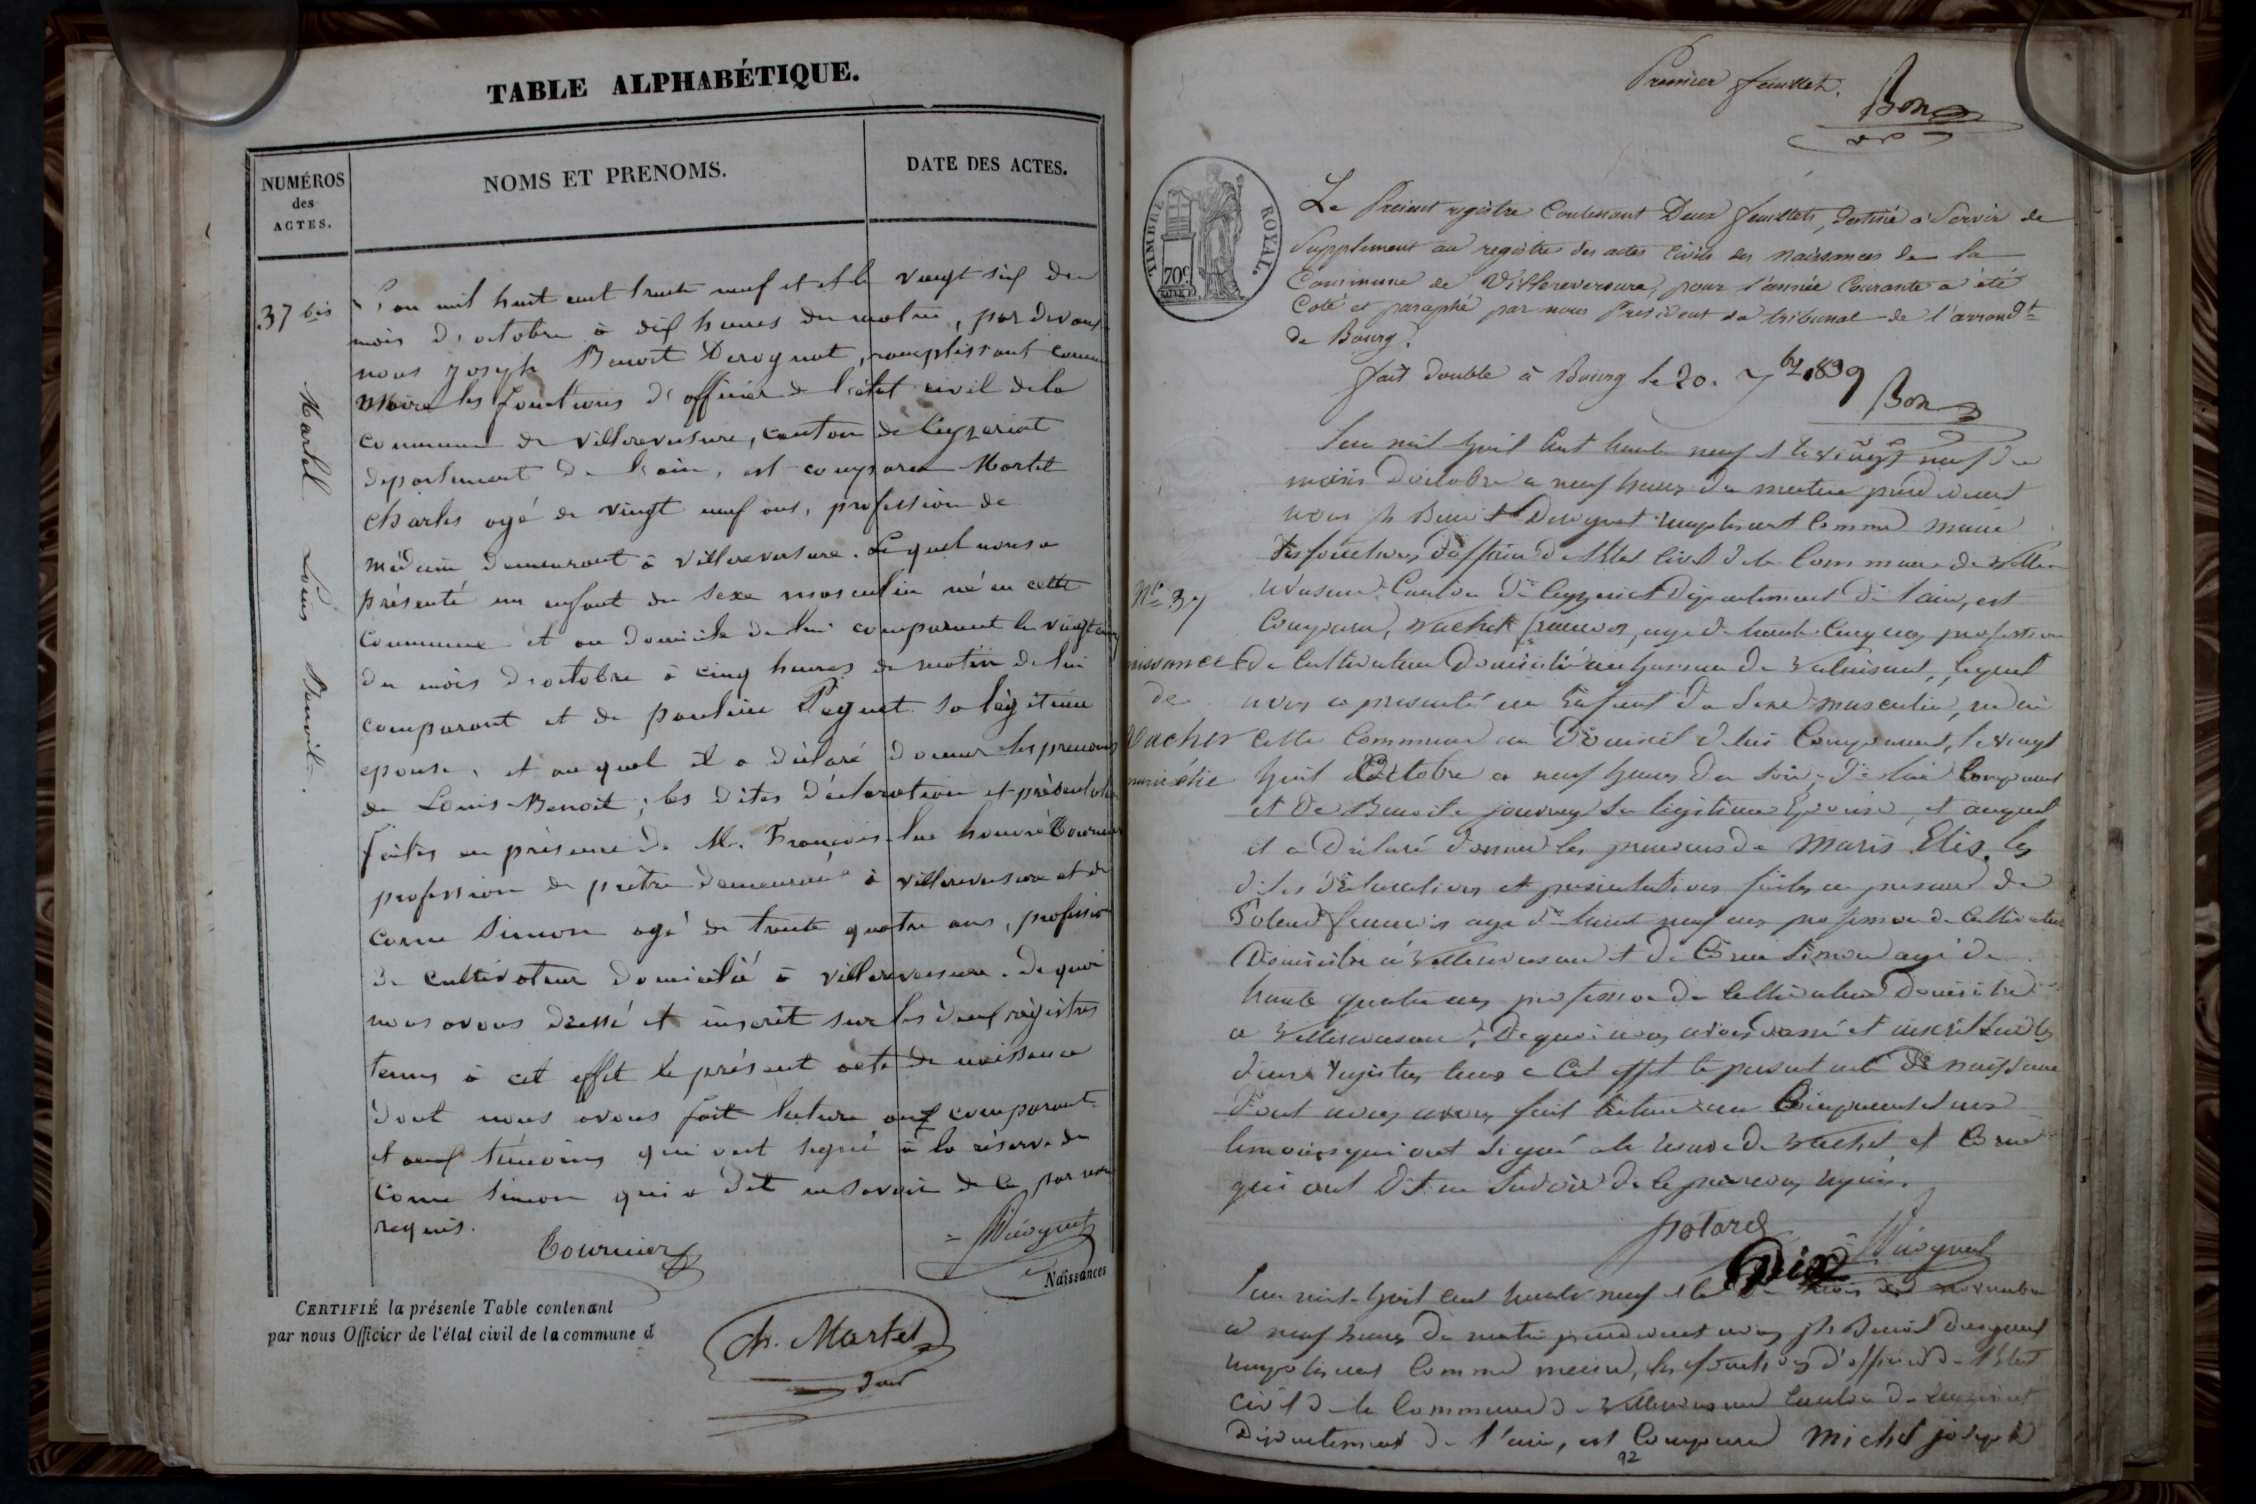 TABLE ALPHABÉTIQUE.
NUMÉROS
des
ACTES.
NOMS ET PRENOMS.
DATE DES ACTES.
37 bis
Martel Louis Benoit.
L'an mil huit cent trente neuf et et le vingt six du
mois d'octobre à dix heures du matin, par devant
nous Joseph Benoit Derognat, remplissant comme
Maire les fonctions d'officier de l'état civil de la
commune de Villereversure, canton de Ceyzeriat
departement de l'ain, est comparu Martel
Charles agé de vingt neuf ans, profession de
médecin demeurant à Villereversure. Lequel nous a
présenté un enfant du sexe masculin né en cette
commune et au domicile de lui comparant le vingt cinq
du mois d'octobre à cinq heures du matin de lui
comparant et de pauline Péquet sa légitime
epouse, et au quel il a déclaré donner les prenoms
de Louis-Benoit; les dites déclaration et présentation
faites en présence de M. François Tournier
profession de prêtre demeurant à Villereversure et de
Corne Simon agé de trente quatre ans, profession
de cultivateur domicilié à Villereversure. De quoi
nous avons dressé et inscrit sur les deux régistres
tenus à cet effet le présent acte de naissance
dont nous avons fait lecture aux comparant
et aux témoins qui ont signé à la réserve de
Corne Simon qui a dit ne savoir de ce par nous
requis.
Tournier
Derognat
Naissances
CERTIFIÉ la présente Table contenant
par nous Officier de l'état civil de la commune d
Ch. Martel
Premier feuillet.
Bon
TIMBRE ROYAL.
70c
Le Présent registre Contenant Deux feuillets, destiné à Servir de
Supplément au registre des actes Civils des Naissances de la
Commune de Villereversure, pour l'année Courante a été
Coté et paraphé par nous Président du tribunal de l'arrondt
de Bourg.
fait double à Bourg le 20. 7bre 1839
Bon
L'an mil huit cent trente neuf et le vingt neuf du
mois d'octobre a neuf heures du matin par devant
nous Jh Benoit Derognat remplissant comme maire
les fonctions d'officier de l'Etat Civil de la Commune de Ville
reversure Canton de Ceyzeriat Département de l'ain, est
No 37
Comparu, Vachet françois, agé de trente cinq ans profession
naissance
de Cultivateur Domicilié au hameau de Valuisant, lequel
de
nous a presenté un Enfant du Sexe masculin, né en
Vachet
cette Commune au Domicil de lui Comparant, le vingt
marie élie
huit Octobre a neuf heures du soir, de lui Comparant
et de Benoite journey sa legitime Epouse, et auquel
il a Déclaré donner les prenoms de Marie Elie les
dites déclarations et presentations faites en presence de
Potard françois agé de trente neuf ans profession de Cultivateur
Domicilié à Villereversure et de Corne Simon agé de
trente quatre ans profession de Cultivateur Domicilié
a Villereversure, De quoi nous avons dressé et inscrit sur les
deux Registres tenus a Cet effet le present acte de naissance
dont nous avons fait lecture au Comparant et aux
temoins qui ont signé a la reserve de Vachet et Corne
qui ont Dit ne Savoir de ce par nous requis.
Potard
Derognat
L'an mil huit cent trente neuf et le Dix du mois de novembre
a neuf heures du matin par devant nous Jh Benoit Derognat
remplissant Comme maire, les fonctions d'officier de l'Etat
Civil de la Commune de Villereversure Canton de Ceyzeriat
Département de l'ain, est Comparu Michel joseph
92